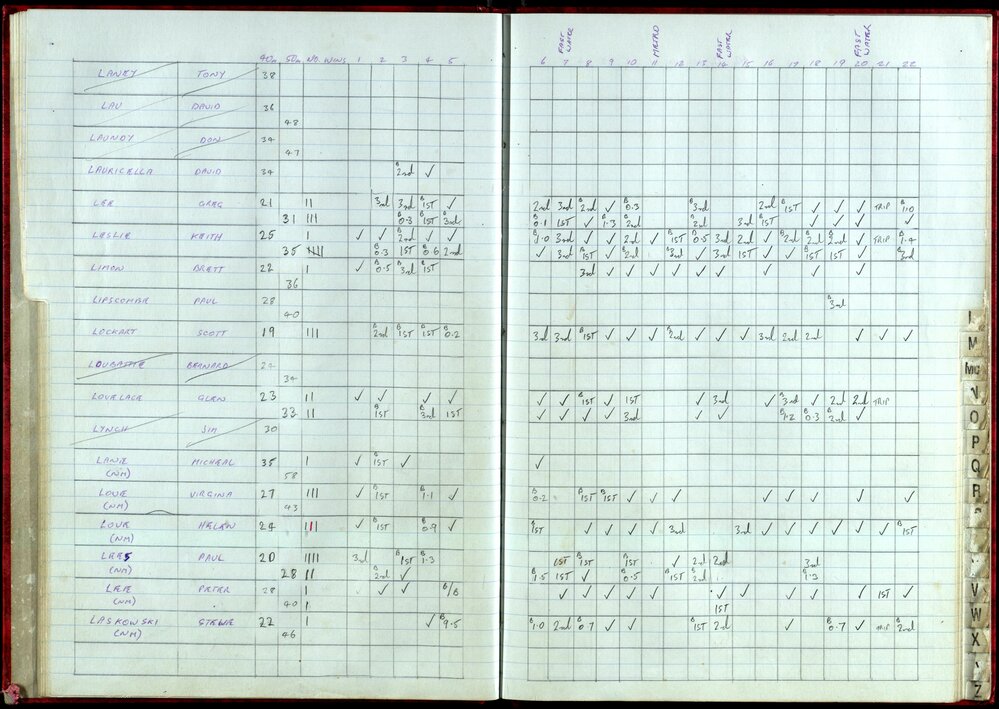 FAST WATER METRO FAST WATER FAST WATER
40m 50m NO. WINS 1 2 3 4 5 6 7 8 9 10 11 12 13 14 15 16 17 18 19 20 21 22
LANEY TONY 38
LAU DAVID 36
48
LAUNDY DON 34
47
LAURICELLA DAVID 34 B 2nd ✓
LEE GREG 21 II 3rd 3rd B 1ST ✓ 2nd 3rd B 2nd ✓ B 0.3 B 3rd 2nd B 1ST ✓ ✓ ✓ TRIP B 1.0
31 III B 0.3 B 1ST B 3rd B 0.1 1ST ✓ B 1.3 B 2nd B 2nd 3rd B 1ST ✓ ✓ ✓
LESLIE KEITH 25 I ✓ ✓ B 2nd ✓ ✓ B 1.0 3rd ✓ ✓ 2nd ✓ B 1ST B 0.5 B 3rd 2nd ✓ B 2nd B 2nd B 2nd ✓ TRIP B 1.4
35 IIII B 0.3 1ST B 0.6 2nd ✓ 3rd B 1ST ✓ B 2nd B 3rd ✓ 3rd 1ST ✓ ✓ 1ST 1ST ✓ B 3rd
LIMON BRETT 22 I ✓ B 0.5 B 3rd B 1ST 3rd ✓ ✓ ✓ ✓ ✓ ✓ ✓ ✓ ✓
36
LIPSCOMBE PAUL 28 B 3rd
40
LOCKART SCOTT 19 III B 2nd B 1ST B 1ST B 0.2 3rd 3rd B 1ST ✓ ✓ ✓ B 2nd ✓ ✓ ✓ 3rd 2nd 2nd ✓ ✓ ✓
BERNARD 24
34
LOVELACE GLEN 23 II ✓ ✓ ✓ ✓ ✓ ✓ B 1ST ✓ 1ST ✓ 3rd ✓ B 3rd ✓ 2nd 2nd TRIP
33 II B 1ST B 3rd 1ST ✓ ✓ ✓ ✓ 3rd ✓ ✓ B 1.2 B 0.3 B 2nd ✓
LYNCH JIM 30
LANE MICHEAL 35 I ✓ B 1ST ✓ ✓
(NM) 58
LOVE VIRGINA 27 III ✓ B 1ST B 1.1 ✓ B 0.2 B 1ST B 1ST ✓ ✓ ✓ ✓ ✓ ✓ ✓ ✓
(NM) 43
LOVE HELEN 24 III ✓ B 1ST B 0.9 ✓ B 1ST ✓ ✓ ✓ ✓ 3rd 3rd ✓ ✓ ✓ ✓ ✓ ✓ B 1ST
(NM)
LEES PAUL 20 IIII 3rd B 1ST B 1.3 1ST B 1ST B 1ST ✓ 2nd 2nd 3rd
(NM) 28 II B 2nd ✓ B 1.5 1ST ✓ B 0.5 B 1ST B 2nd B 1.3
LEE PETER 28 I ✓ ✓ ✓ ✓ ✓ ✓ ✓ ✓ ✓ ✓ ✓ ✓ 1ST ✓
(NM) 40 I 1ST
LASKOWSKI STEVE 22 I ✓ B 9.5 B 1.0 2nd B 0.7 ✓ ✓ B 1ST 2nd ✓ B 0.7 ✓ TRIP B 2nd
(NM) 46
L
M
MC
N
O
P
Q
R
V
W
X
Z